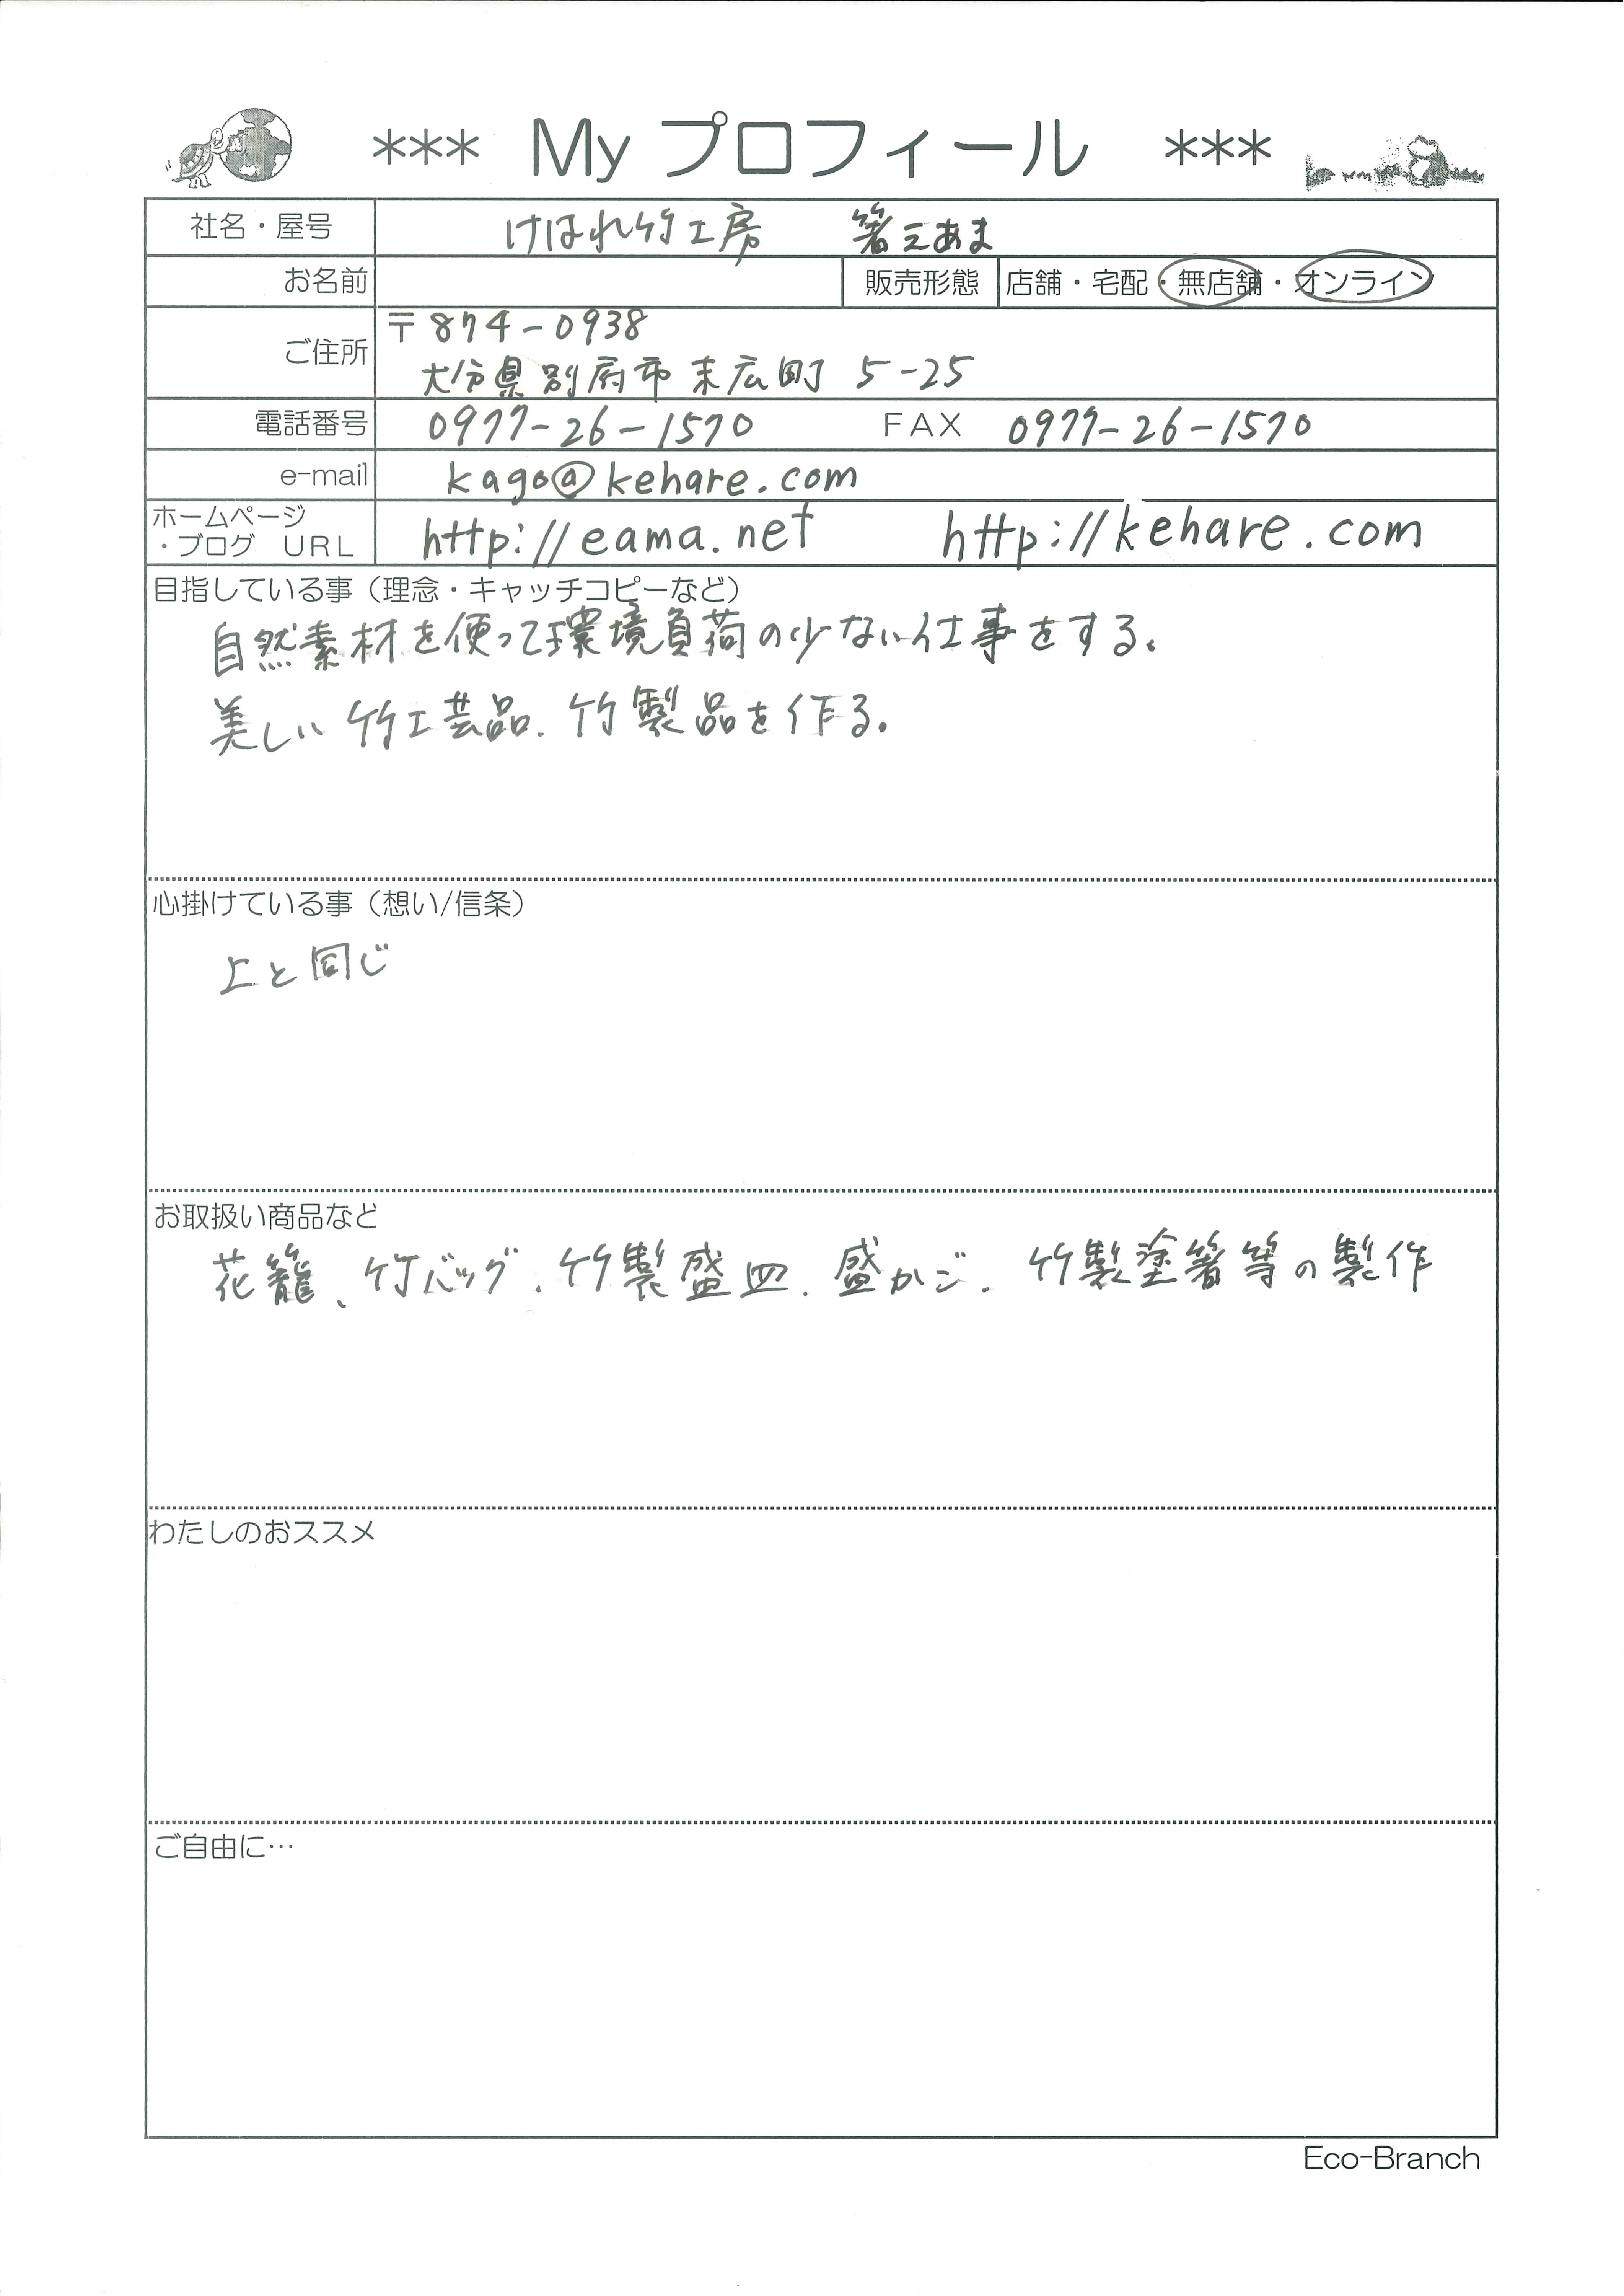 *** My プロフィール ***
社名・屋号 けはれ竹工房 箸工あま
お名前 販売形態 店舗・宅配・無店舗・オンライン
ご住所 〒874-0938
大分県別府市末広町 5-25
電話番号 0977-26-1570 FAX 0977-26-1570
e-mail kago@kehare.com
ホームページ
・ブログ URL http://eama.net http://kehare.com
目指している事（理念・キャッチコピーなど）
自然素材を使って環境負荷の少ない仕事をする。
美しい竹工芸品、竹製品を作る。
心掛けている事（想い/信条）
上と同じ
お取扱い商品など
花籠、竹バッグ、竹製盛皿、盛かご、竹製塗箸等の製作
わたしのおススメ
ご自由に…
Eco-Branch